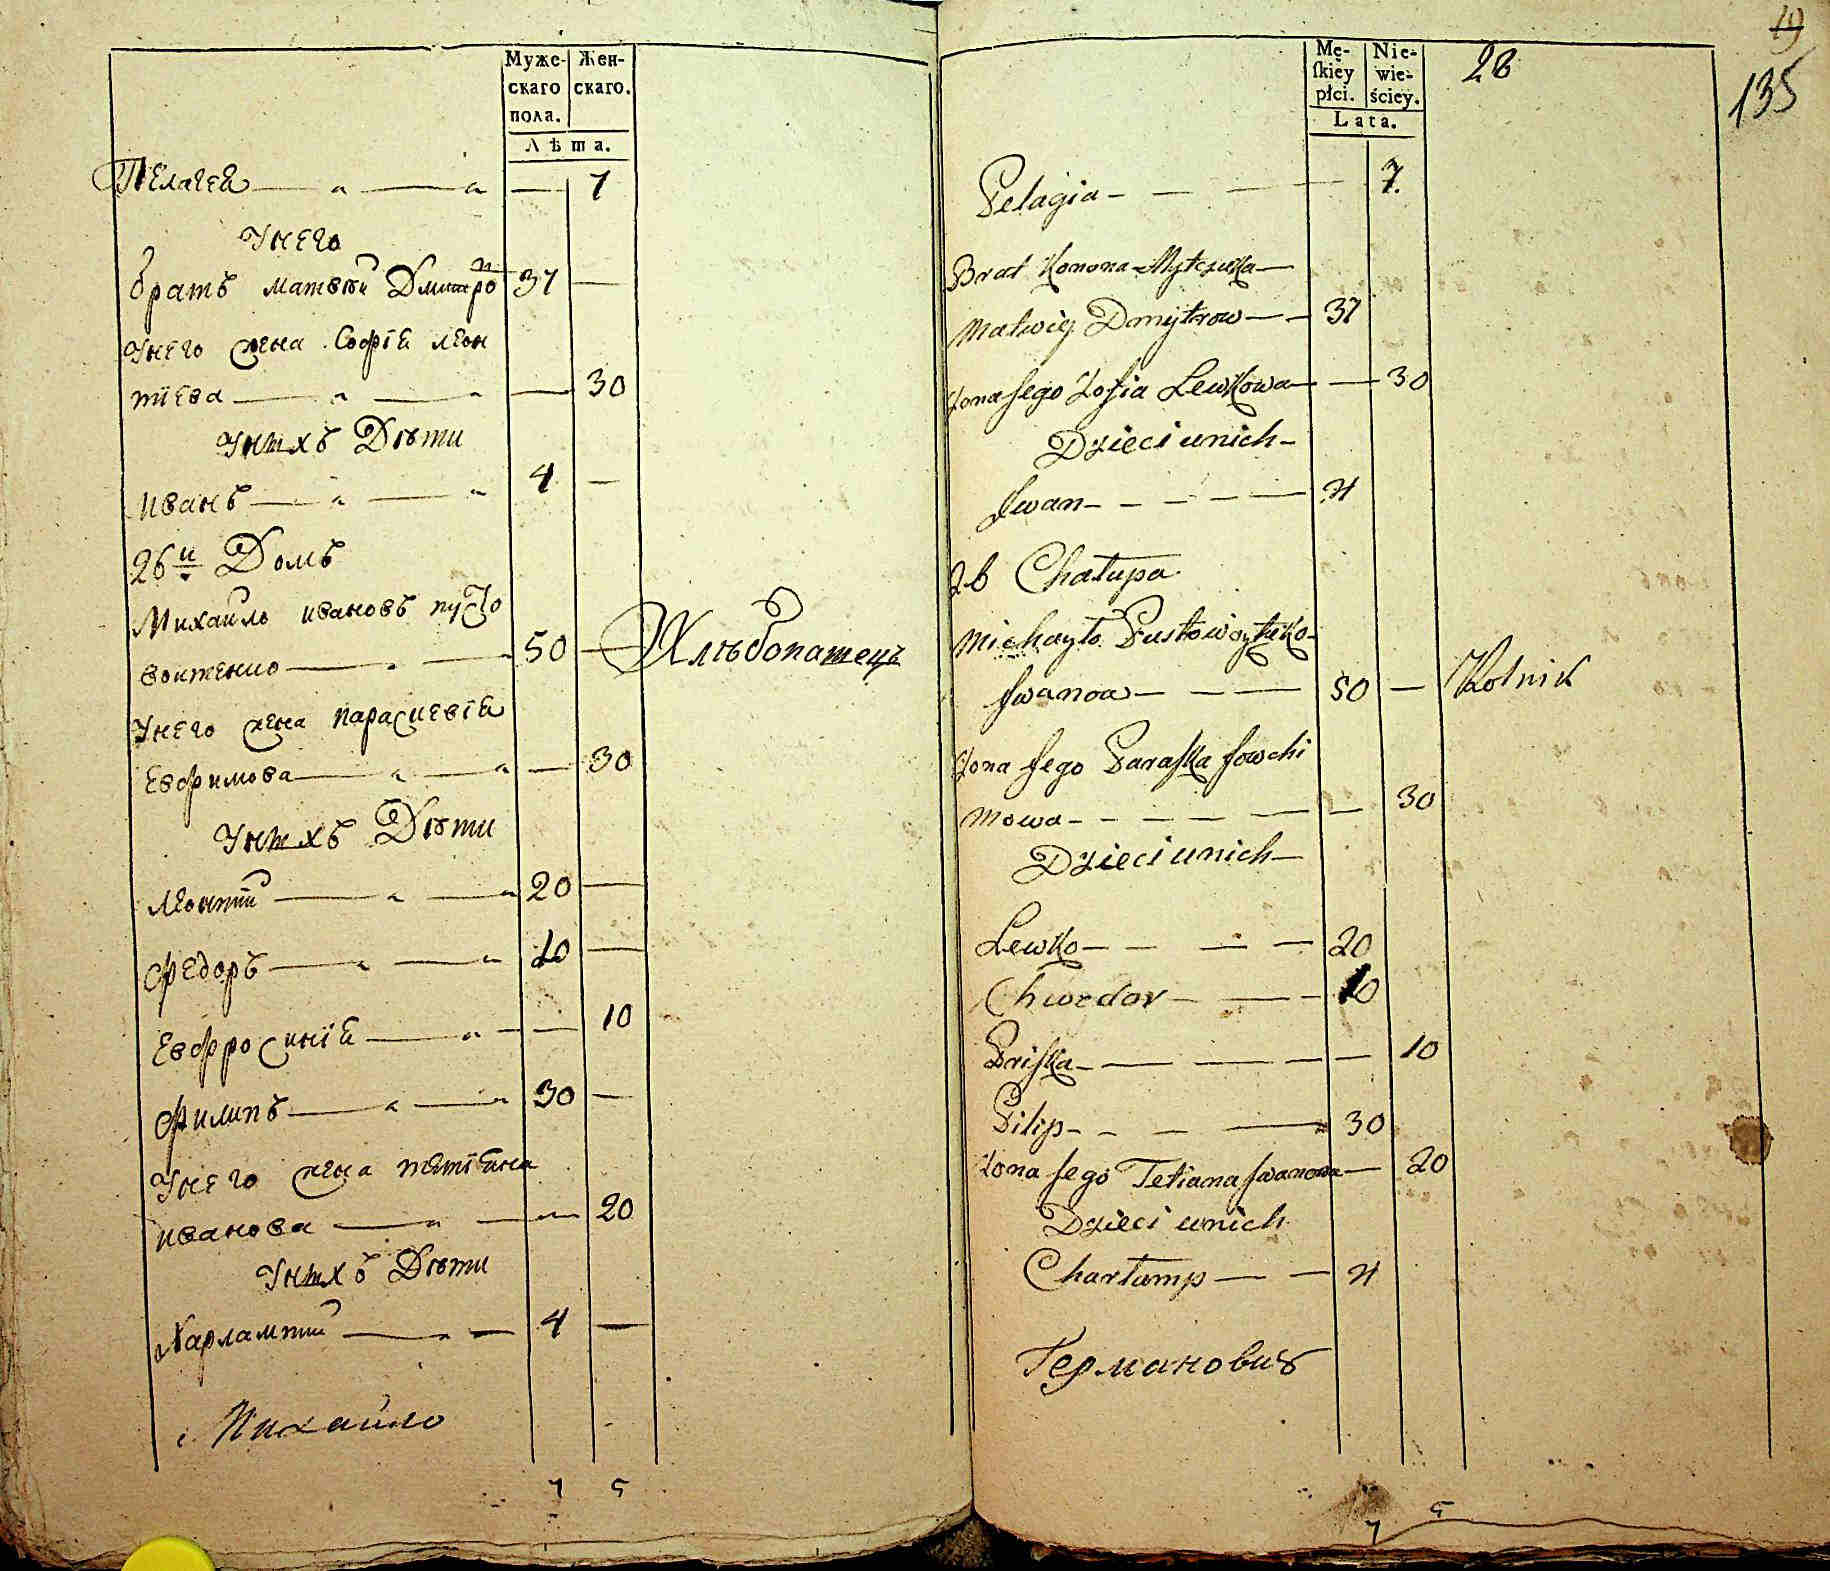 Муже- Жен-
скаго скаго.
пола.
Лѣта.
Пелагея — „ — „ — 7
У него
братъ матвѣй Дмитро 37 —
У него жена Софія леон
тіева — „ — „ — 30
У нихъ Дѣти
иванъ — „ — „ 4 —
26й Домъ
Михайль ивановъ пусто
войтенко — „ — 50 — Хлѣбопашецъ
У него жена параскевія
Евфимова — „ — „ — 30
У нихъ Дѣти
леонтій — „ — „ 20 —
федоръ — „ — „ 10 —
Евфросинія — „ — — 10
филипъ — „ — „ 30 —
У него жена татіана
иванова — „ — „ — 20
У нихъ Дѣти
Харлампій — „ — 4 —
Михайло
7 5
19
Mę- Nie- 28
skiéy wie- 135
płci. ściey.
Lata.
Pelagia — — — — 7.
Brat Konona Mytczuka —
Matwiey Dmytrow — — 37
Zona Jego Zofia Lewkowa — — 30
Dzieci u nich —
Iwan — — — — — 4
26 Chałupa
Michayło Pustowoytęko
Iwanow — — — 50 — Rolnik
Zona Jego Paraska Jowchi
mowa — — — — — — 30
Dzieci u nich —
Lewko — — — — 20
Chwedor — — — 10
Priska — — — — — 10
Pilip — — — — 30
Zona Jego Tetiana Iwanowa — 20
Dzieci u nich
Charłamp — — 4
Германовичъ
7 5